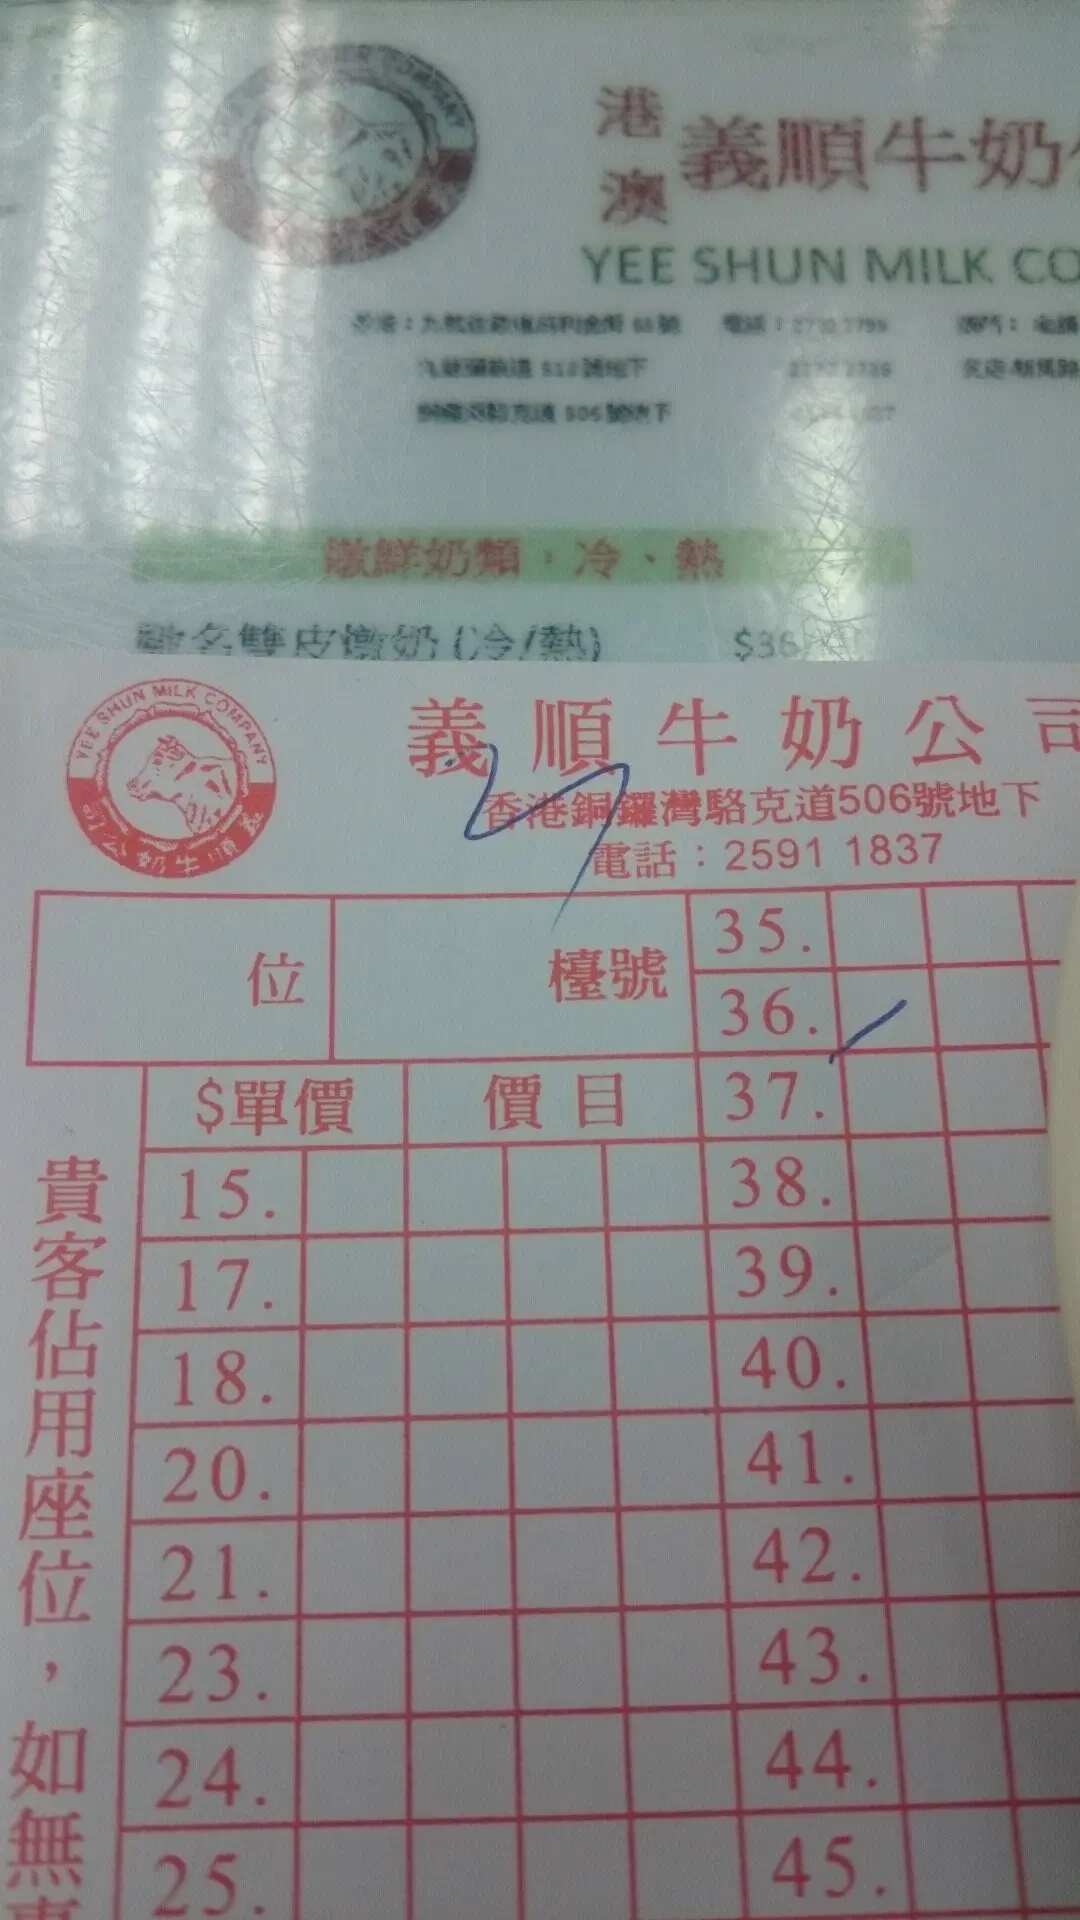 港澳 義順牛奶
YEE SHUN MILK CO
電話：
燉鮮奶類，冷、熱
馳名雙皮燉奶(冷/熱) $36
YEE SHUN MILK COMPANY
司公奶牛順義
義順牛奶公司
香港銅鑼灣駱克道506號地下
電話：2591 1837
位 檯號 35.
36.
$單價 價目 37.
15. 38.
17. 39.
18. 40.
20. 41.
21. 42.
23. 43.
24. 44.
25. 45.
貴客佔用座位，如無